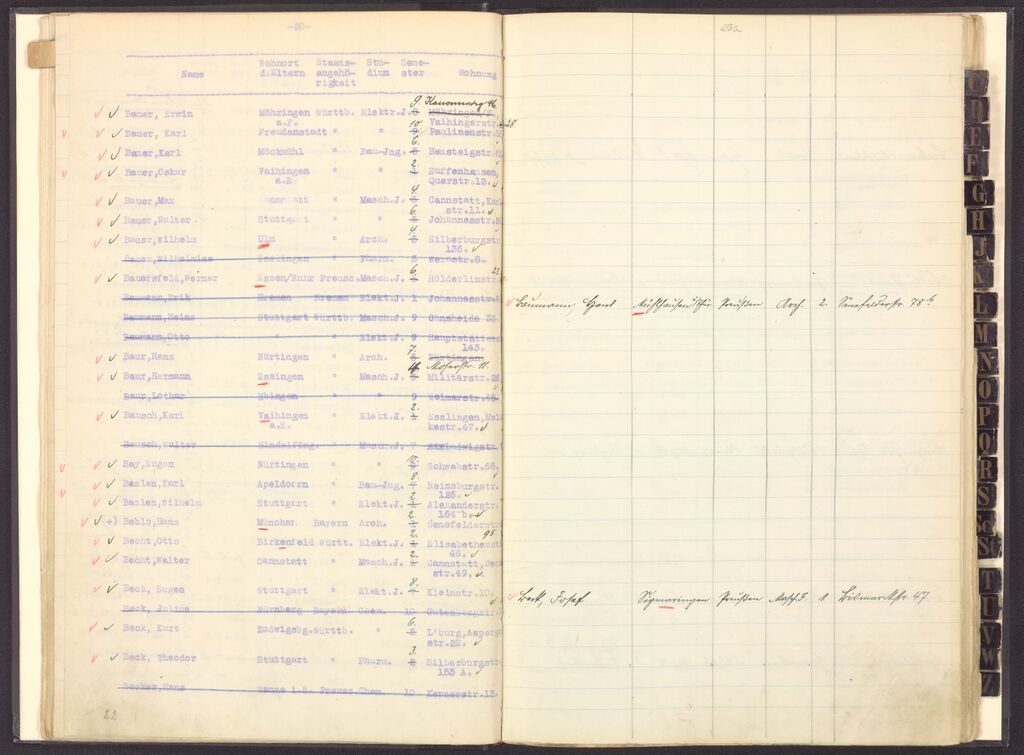 -20-
Name Wohnort d.Eltern Staats-angehö-rigkeit Stu-dium Seme-ster Wohnung
Bauer, Erwin Möhringen Württb. Elektr.J. 9. Kanonenweg 46.
a.F. Vaihingerstr. 28.
Bauer, Karl Freudenstadt " " 10. Paulinenstr.
Bauer,Karl Möckmühl " Bau-Jng. 6. Heusteigstr.
Bauer,Oskar Vaihingen " " 2. Zuffenhausen,
a.E. Querstr.12.
Bauer,Max Cannstatt " Masch.J. 4. Cannstatt,
str.11.
Bauer,Walter Stuttgart " " 6. Johannesstr.
Bauer,Wilhelm Ulm " Arch. 4. Silberburgstr
136.
Bauer,Wilhelmine Esslingen " Pharm. 3 Werastr.8.
Bauersfeld,Werner Essen/Ruhr Preuss. Masch.J. 6. Hölderlinstr 23.
Baumann,Erik Bremen Bremen Elekt.J. 1 Johannesstr.
Baumann,Heinz Stuttgart Württb. Masch.J. 9 Gänsheide
Baumann,Otto " " Elekt.J. 9 Hauptstätter
143.
Baur,Hans Nürtingen " Arch. 7. Nürtingen.
Moserstr. 11.
Baur,Hermann Essingen " Masch.J. Militärstr.
Baur,Lothar Ebingen " 9 Weimarstr.
Bausch,Karl Vaihingen " Elekt.J. 2. Esslingen,
a.E. kestr.47.
Bausch,Walter Sindelfing. " Masch.J. 7 Ludwigstr.
Bay,Eugen Nürtingen " " Schwabstr.68.
Bazlen,Karl Apeldoorn " Bau-Jng. 8. Reinsburgstr.
126.
Bazlen,Wilhelm Stuttgart " Elekt.J. 2. Alexanderstr.
164 b.
+) Beblo,Hans München Bayern Arch. 2. Senefelderstr
95.
Becht,Otto Birkenfeld Württ. Elekt.J. 2. Elisabethenst
46.
Becht,Walter Cannstatt " Masch.J. 2. Cannstatt,
str.49.
Beck, Eugen Stuttgart " Elekt.J. 8. Kleinstr.10.
Beck, Julius Nürnberg Bayern Chem. 10 Gutenbergstr
Beck, Kurt Ludwigsbg.Württb. " 6. L'burg,Asperg
str.22.
Beck, Theodor Stuttgart " Pharm. 3. Silberburgstr
153 A.
Becker,Hans Preuss. Chem. 10 Kernerstr.
22
20a
Baumann, Mühlhausen Preußen Arch. 2. Senefelderstr. 75b
Beck, Josef Sigmaringen Preußen Masch.J. 1. Bismarckstr. 47
C
D
E
F
G
H
J
K
L
M
N
O
P
Q
R
S
Sch
St
T
U
V
W
Z